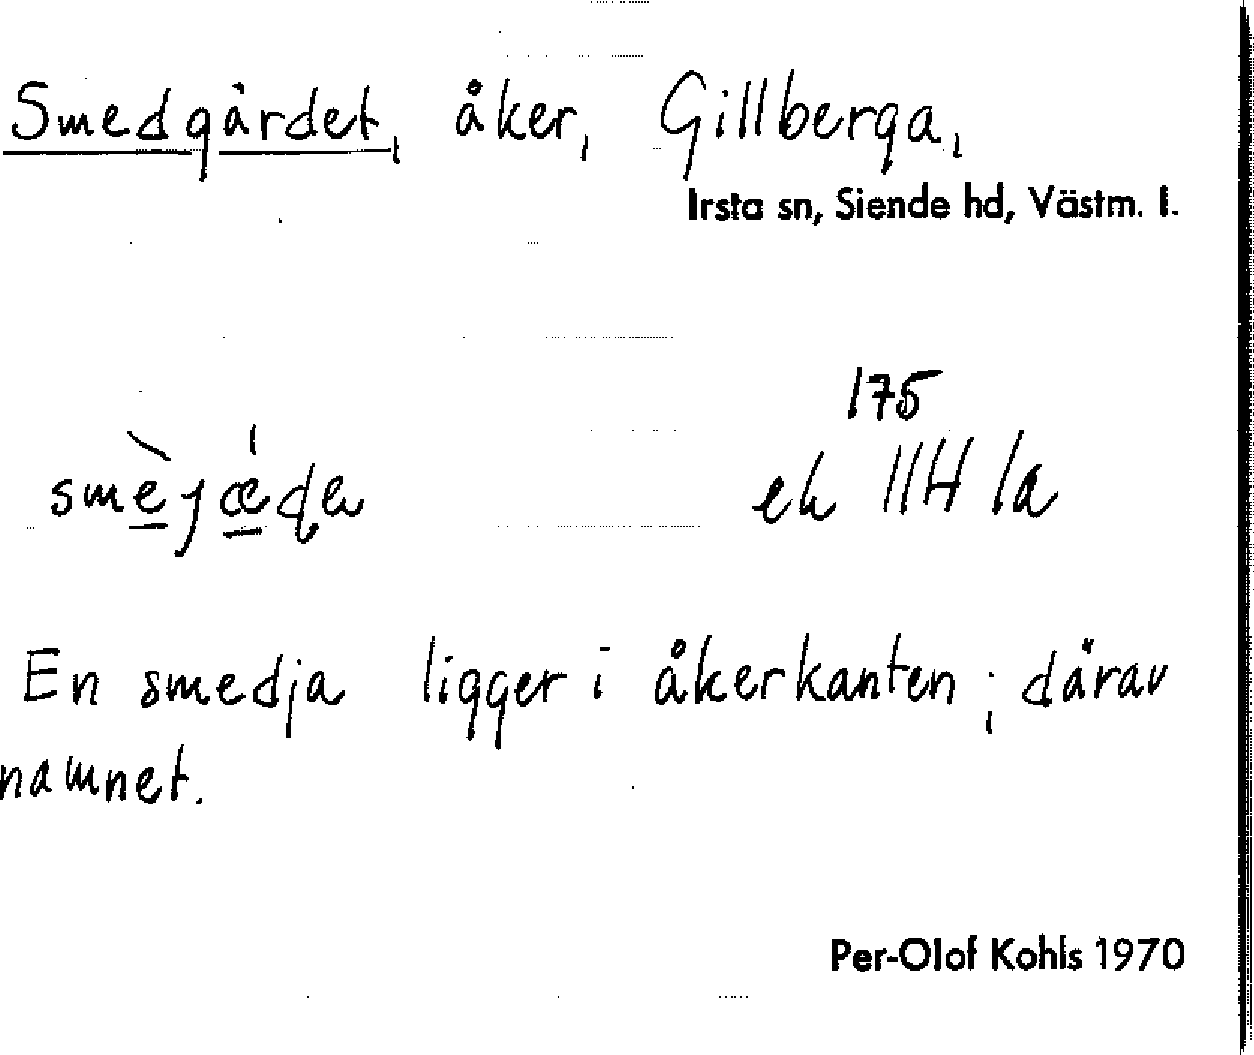 Smedgärdet, åker, Gillberga,
Irsta sn, Siende hd, Västm. l.
175
smèjæ̀ɖa ek 11H 1a
En smedja ligger i åkerkanten; därav
namnet.
Per-Olof Kohls 1970